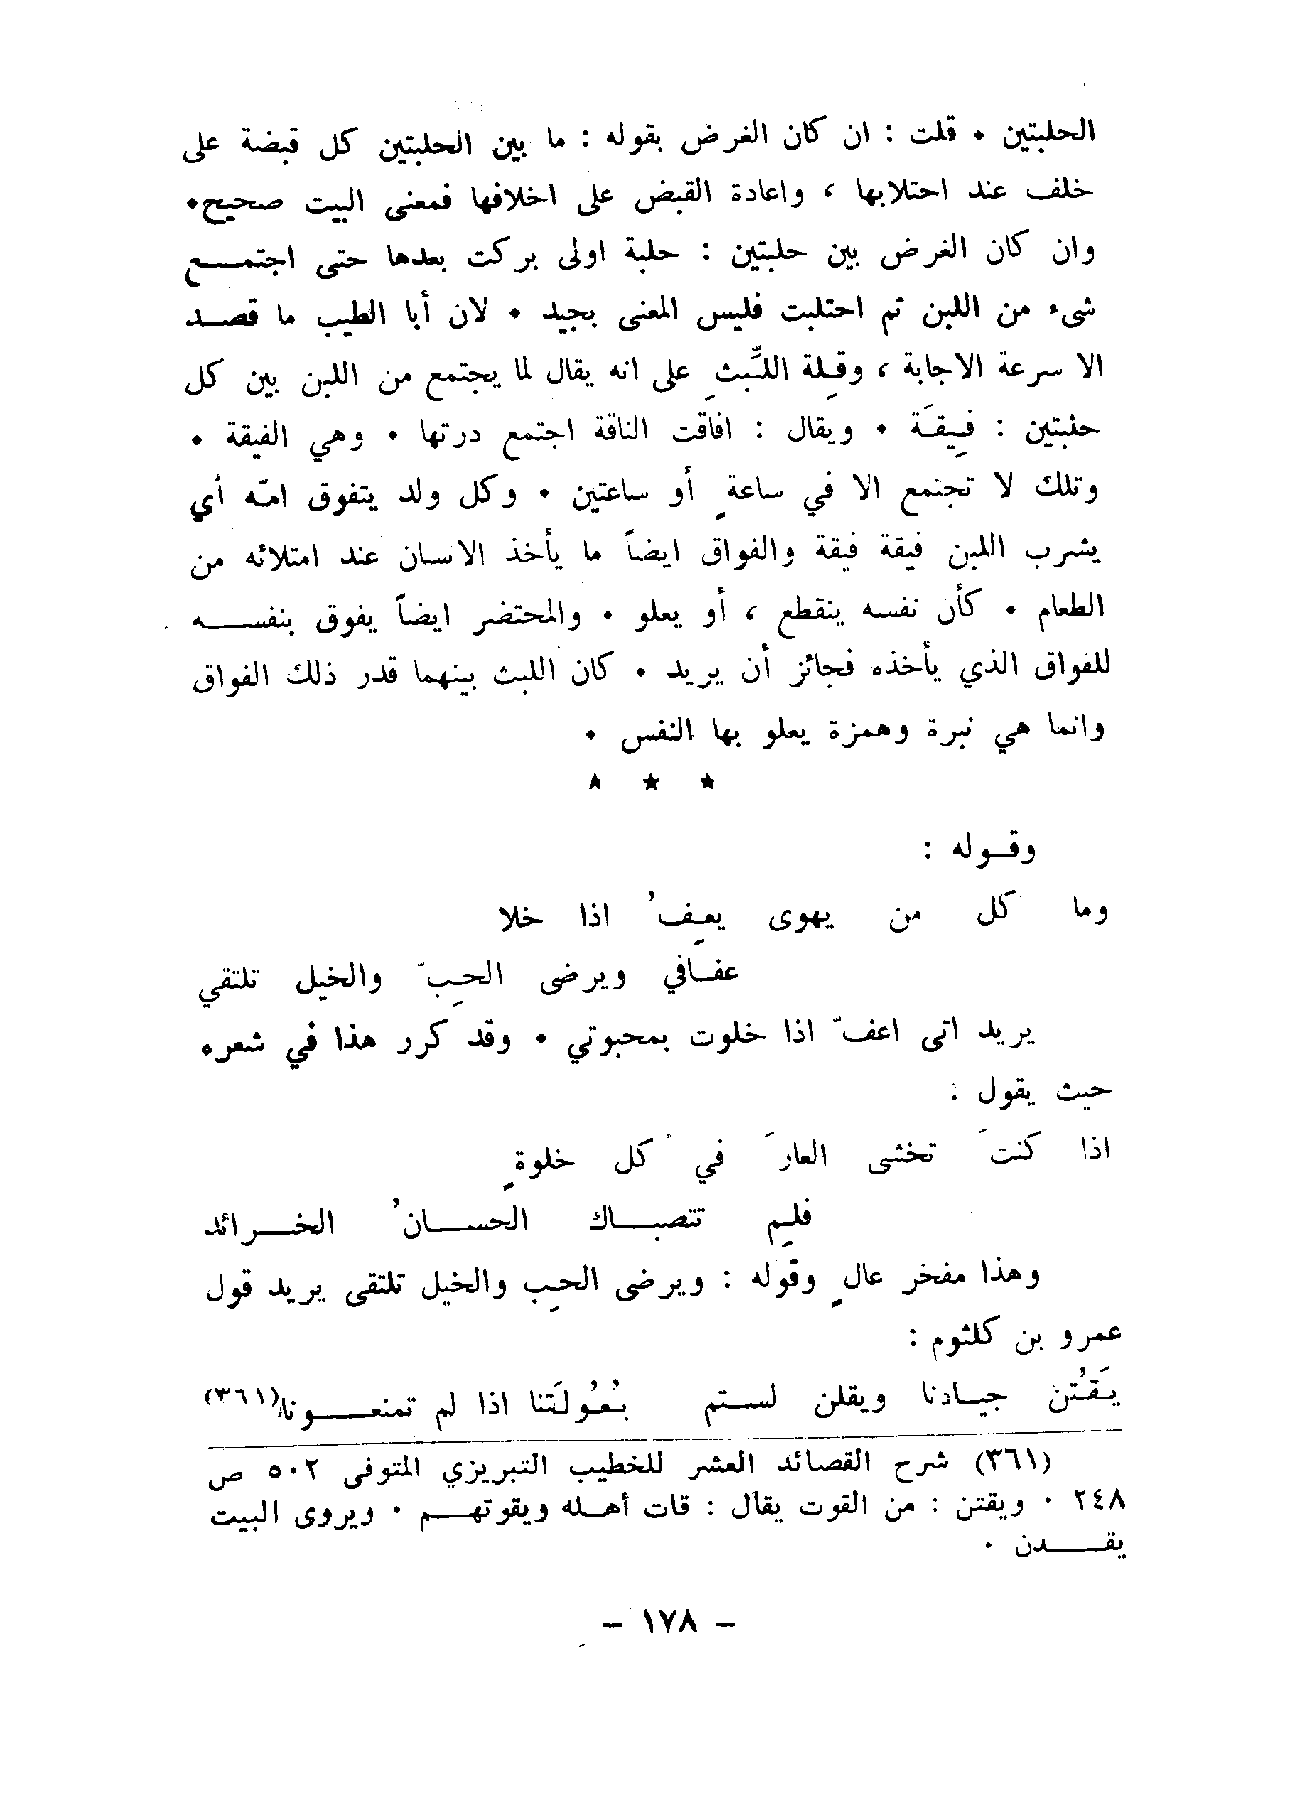 الحلبتين • قلت : ان كان الغرض بقوله : ما بين الحلبتين كل قبضة على
خلف عند احتلابها ، واعادة القبض على اخلافها فمعنى البيت صحيح•
وان كان الغرض بين حلبتين : حلبة اولى بركت بعدها حتى اجتمـــع
شىء من اللبن ثم احتلبت فليس المعنى بجيد • لان أبا الطيب ما قصــد
الا سرعة الاجابة ، وقِلة اللَّبثِ على انه يقال لما يجتمع من اللبن بين كل
حلبتين : فِيقَة • ويقال : افاقت الناقة اجتمع درتها • وهي الفيقة •
وتلك لا تجتمع الا في ساعةٍ أو ساعتين • وكل ولد يتفوق امّه أي
يشرب اللبن فيقة فيقة والفواق ايضاً ما يأخذ الانسان عند امتلائه من
الطعام • كأن نفسه ينقطع ، أو يعلو • والمحتضر ايضاً يفوق بنفســـه
للفواق الذي يأخذه فجائز أن يريد • كان اللبث بينهما قدر ذلك الفواق
وانما هي نبرة وهمزة يعلو بها النفس •
★ ★ ★
وقـوله :
وما كل من يهوى يعِفُ اذا خلا
عفـافي ويرضى الحِبّ والخيل تلتقي
يريد انى اعفّ اذا خلوت بمحبوتي • وقد كرر هذا في شعره
حيث يقول :
اذا كنتَ تخشى العارَ في كل خلوةٍ
فلِم تتصبـــاك الحســـانُ الخـــرائد
وهذا مفخر عالٍ وقوله : ويرضى الحِب والخيل تلتقى يريد قول
عمرو بن كلثوم :
يَقُتن جيـادنا ويقلن لســتم بُعُولَتنا اذا لم تمنعــــونا(٣٦١)
(٣٦١) شرح القصائد العشر للخطيب التبريزي المتوفى ٥٠٢ ص
٢٤٨ • ويقتن : من القوت يقال : قات أهـله ويقوتهـــم • ويروى البيت
يقــــدن •
– ١٧٨ –